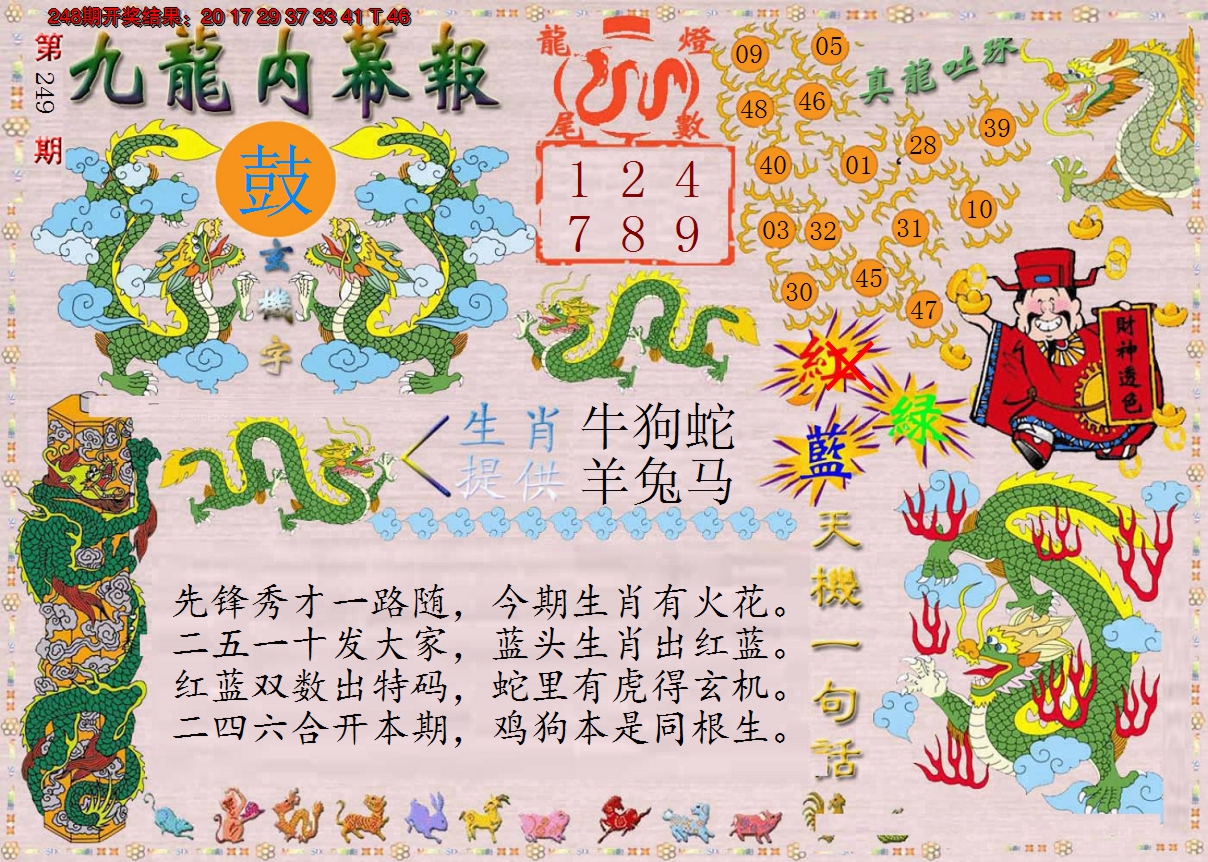 248期开奖结果：20 17 29 37 33 41 T.46
第
249
期
九龍内幕報
鼓
玄
機
字
龍 燈
尾 數
1 2 4
7 8 9
真龍吐珠
09 05
48 46
28 39
40 01
03 32 31 10
30 45
47
財神透色
紅
綠
藍
生肖 牛狗蛇
提供 羊兔马
天機一句话
先锋秀才一路随，今期生肖有火花。
二五一十发大家，蓝头生肖出红蓝。
红蓝双数出特码，蛇里有虎得玄机。
二四六合开本期，鸡狗本是同根生。